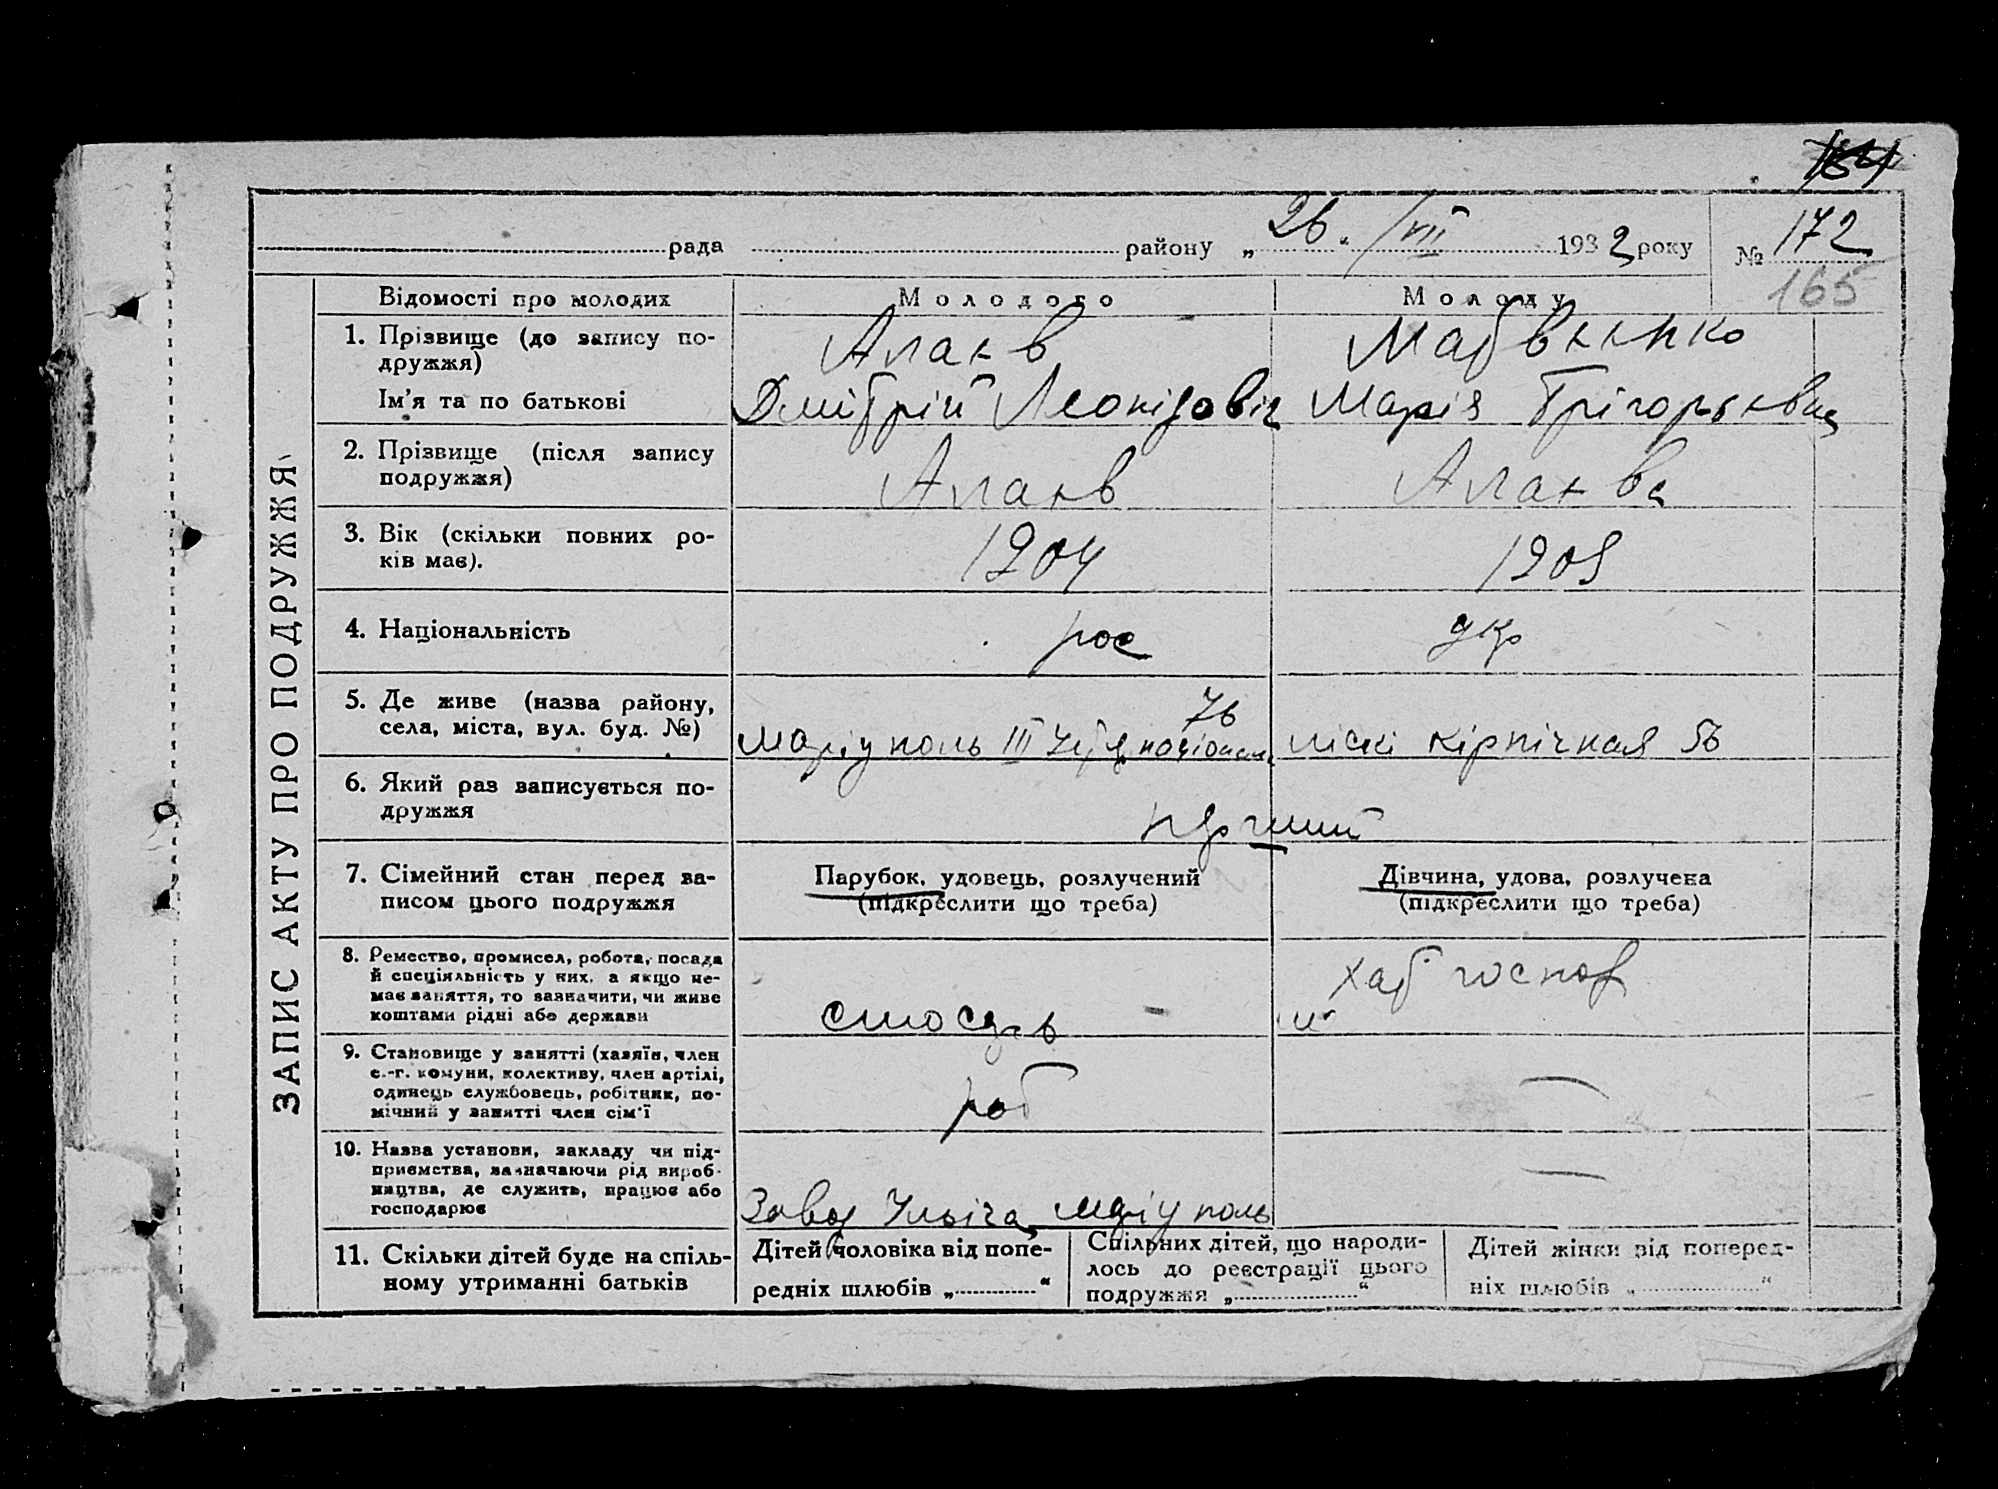 164
рада района „ 26 “ VII 1932 року № 172
165
ЗАПИС АКТУ ПРО ПОДРУЖЖЯ
Відомості про молодих Молодого Молоду
1. Прізвище (до запису по-
дружжя)
Апаєв Матвєєнко
Ім'я та по батькові Дмітрій Леонідовіч Марія Грігорьєвна
2. Прізвище (після запису
подружжя)
Апаєв Апаєва
3. Вік (скільки повних ро-
ків має).
1904 1905
4. Національність рос укр
5. Де живе (назва району,
села, міста, вул. буд. №)
76
Маріуполь III піскі кірпічная 56
6. Який раз записується по-
дружжя
перший
7. Сімейний стан перед за-
писом цього подружжя
Парубок, удовець, розлучений Дівчина, удова, розлучена
(підкреслити що треба) (підкреслити що треба)
8. Ремество, промисел, робота, посада
й спеціяльність у них, а якщо не-
має заняття, то зазначити, чи живе
коштами рідні або держави
слюсарь хат госпор
9. Становище у занятті (хазяїн, член
с.-г. комуни, колективу, член артілі,
одинець службовець, робітник, по-
мічний у занятті член сім'ї
роб —
10. Назва установи, закладу чи під-
приємства, зазначаючи рід вироб-
ництва, де служить, працює або
господарює
Завод Ільіча Маріуполь —
11. Скільки дітей буде на спіль-
ному утриманні батьків
Дітей чоловіка від попе-
редніх шлюбів „ “
Спільних дітей, що народи-
лось до реєстрації цього
подружжя „ “
Дітей жінки від поперед-
ніх шлюбів „ “